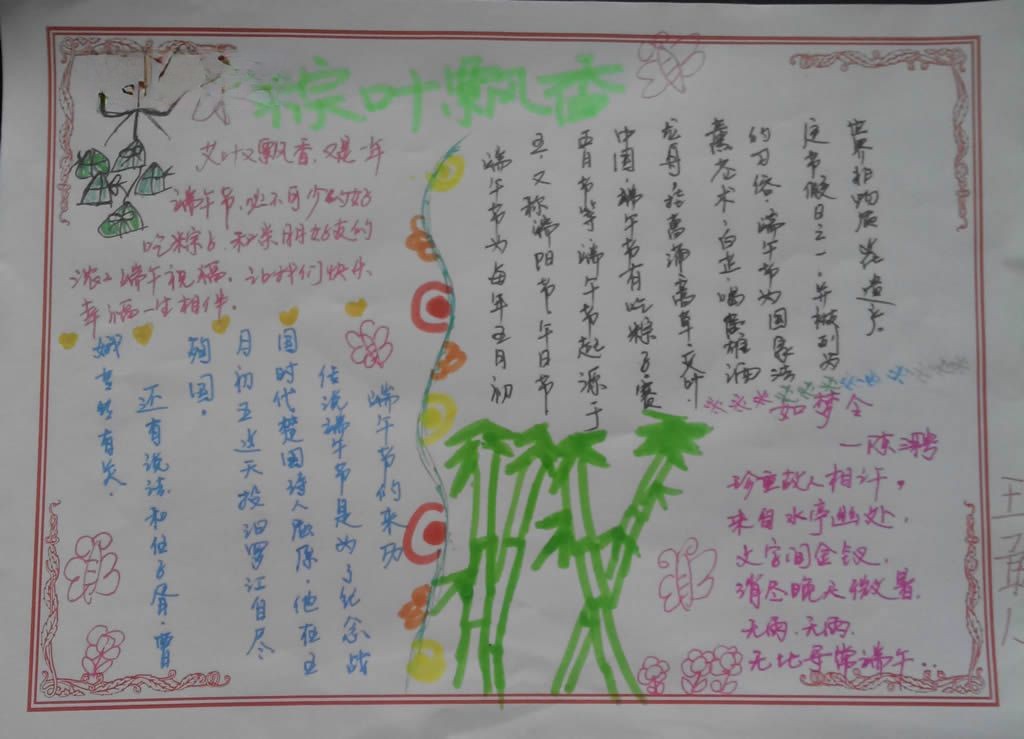 粽叶飘香
艾叶又飘香,又是一年
端午节,必不可少的好
吃粽子,和亲朋好友的
浓浓端午祝福,让我们快乐
幸福一生相伴。
端午节为每年五月初
五,又称端阳节,午日节,
五月节等,端午节起源于
中国,端午节有吃粽子,赛
龙舟,挂菖蒲,蒿草,艾叶,
薰苍术,白芷,喝雄酒
的习俗,端午节为国家法
定节假日之一,并被列为
世界非物质
端午节的来历
传说端午节是为了纪念战
国时代楚国诗人屈原,他在五
月初五这天投汨罗江自尽
殉国。
还有说法和伍子胥,曹
娥等有关。
如梦令
—陈
珍重故人相许。
来自水亭幽处,
文字间金钗,
消尽晚天微暑。
无雨,无雨,
无比寻常端午..